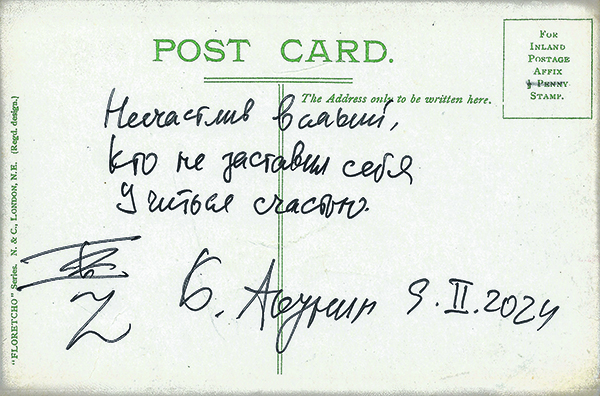 POST CARD.
FOR
INLAND
POSTAGE
AFFIX
½ PENNY
STAMP.
The Address only to be written here.
Несчастлив всякий,
Кто не заставил себя
Учиться счастью.
Б. Акунин 9.II.2024
"FLORETCHO" Series. N. & C., LONDON, N.E. (Regd. design.)